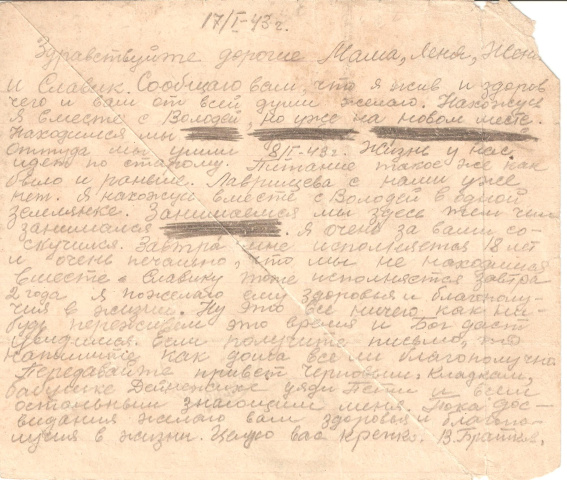 17/I-43 г.
Здравствуйте дорогие Мама, Леня, Женя
и Славик. Сообщаю вам, что я жив и здоров
чего и вам от всей души желаю. Нахожусь
Я вместе с Володей но уже на новом месте.
Находимся мы
оттуда мы ушли 8/I-43 г. Жизнь у нас
идет по старому. Питание такое же как
было и раньше. Лавринцева с нами уже
нет. Я нахожусь вместе с Володей в одной
землянке. Занимаемся мы здесь тем чем
занимался . Я очень за вами со-
скучился. Завтра мне исполняется 18 лет
и очень печально, что мы не находимся
вместе. Славику тоже исполняется завтра
2 года я пожелаю ему здоровья и благополу-
чия в жизни. Ну это все ничего как ни-
будь переживем это время и Бог даст
увидимся. Если получите письмо, то
напишите как дома все ли благополучно
Передавайте привет Черновым, Кладкам,
бабушке дяди Пети и всем
остальным знающим меня. Пока до с-
видания желаю вам здоровья и благопо-
лучия в жизни. Целую вас крепко. В.